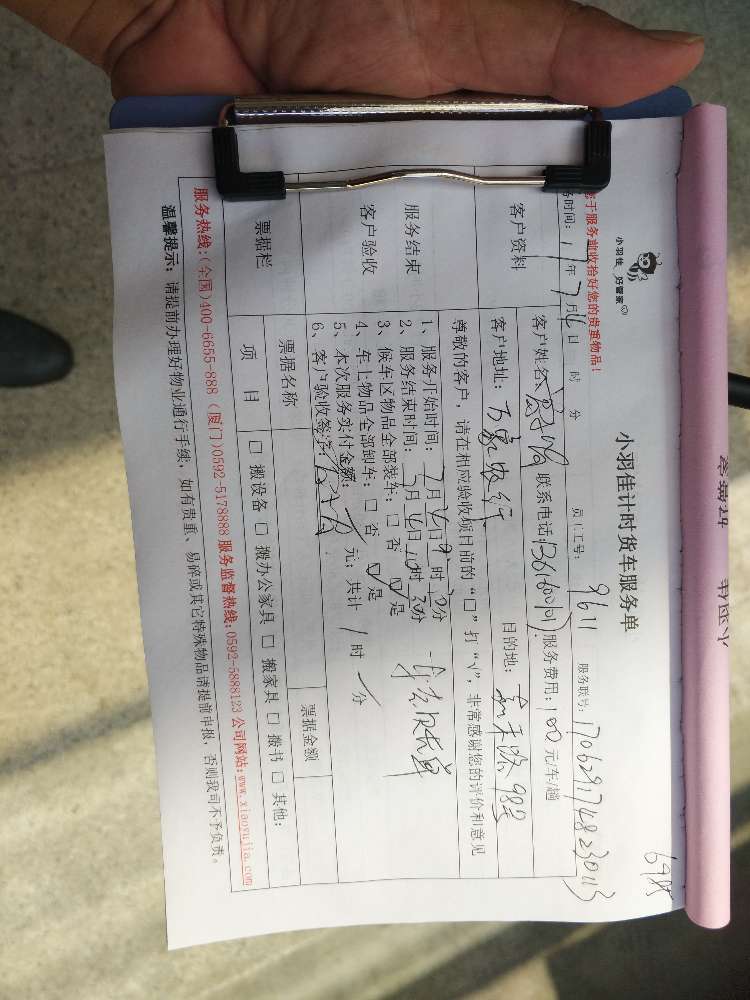 6985
小羽佳 好管家
小羽佳计时货车服务单
于服务前收拾好您的贵重物品!
务时间: 17年7月16日 时 分 员工工号: 9611 服务联号:
客户资料
客户姓名: 联系电话: 服务费用: 100元/车/趟
客户地址: 目的地: 98号
尊敬的客户, 请在相应验收项目前的“□”打“√”, 非常感谢您的评价和意见
服务结束
客户验收
1、服务开始时间: 7月16日9时30分
2、服务结束时间: 7月16日10时30分
3、候车区物品全部装车: □ 否 ☑ 是
4、车上物品全部卸车: □ 否 ☑ 是
5、本次服务实付金额: 元; 共计 1 时 / 分
6、客户验收签字:
票据栏
票据名称 票据金额
项 目 □ 搬设备 □ 搬办公家具 □ 搬家具 □ 搬书 □ 其他:
服务热线:(全国)400-6655-888 (厦门)0592-5178888 服务监督热线:0592-5888123 公司网站:www.xiaoyujia.com
温馨提示: 请提前办理好物业通行手续, 如有贵重、易碎或其它特殊物品请提前申报, 否则我司不予负责。